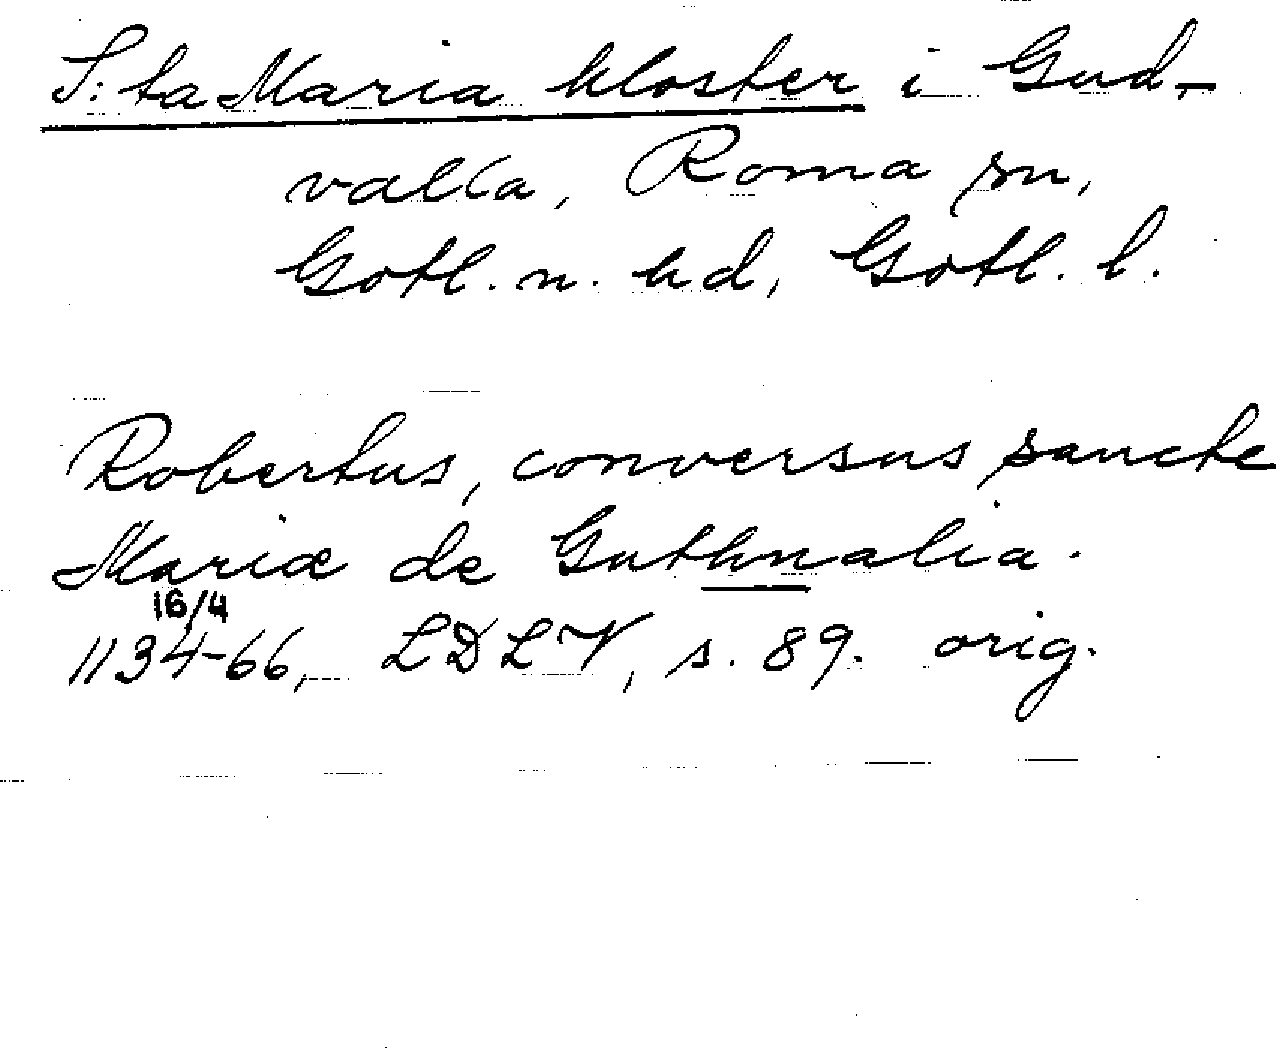 S:ta Maria kloster i Gud-
valla, Roma sn,
Gotl. n. hd, Gotl. l.
Robertus, conversus sancte
Mariæ de Guthnalia.
16/4
1134-66, LDLV, s. 89. orig.